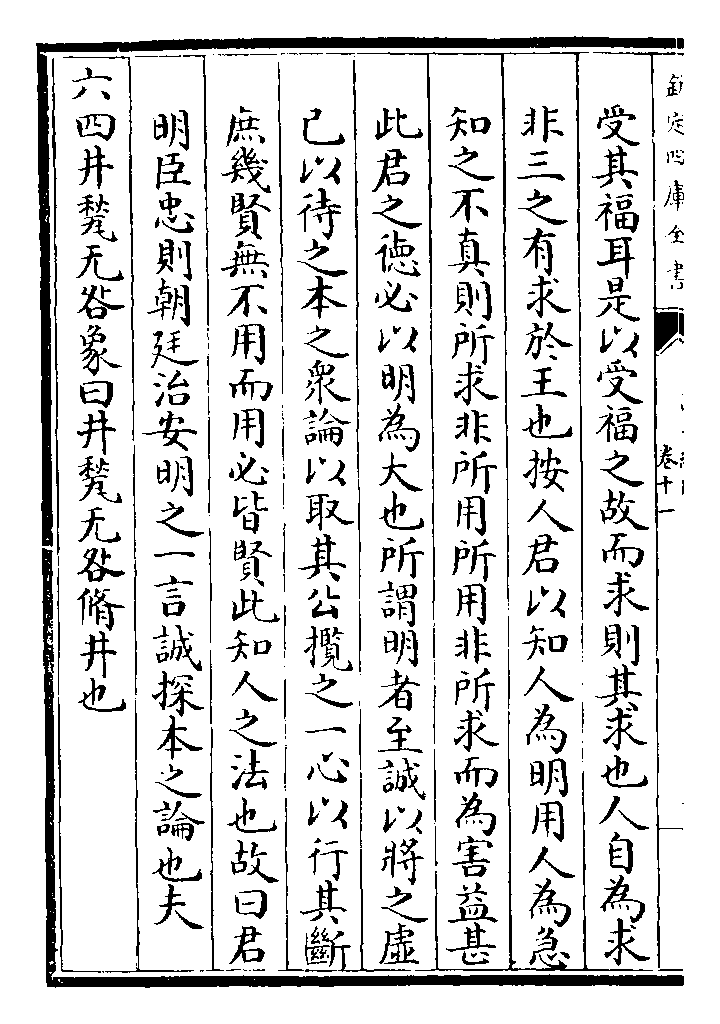 欽定四庫全書
卷十一
受其福耳是以受福之故而求則其求也人自為求
非三之有求於王也按人君以知人為明用人為急
知之不真則所求非所用所用非所求而為害益甚
此君之徳必以明為大也所謂明者至誠以將之虛
已以待之本之衆論以取其公攬之一心以行其斷
庶幾賢無不用而用必皆賢此知人之法也故曰君
明臣忠則朝廷治安明之一言誠探本之論也夫
六四井甃无咎象曰井甃无咎脩井也